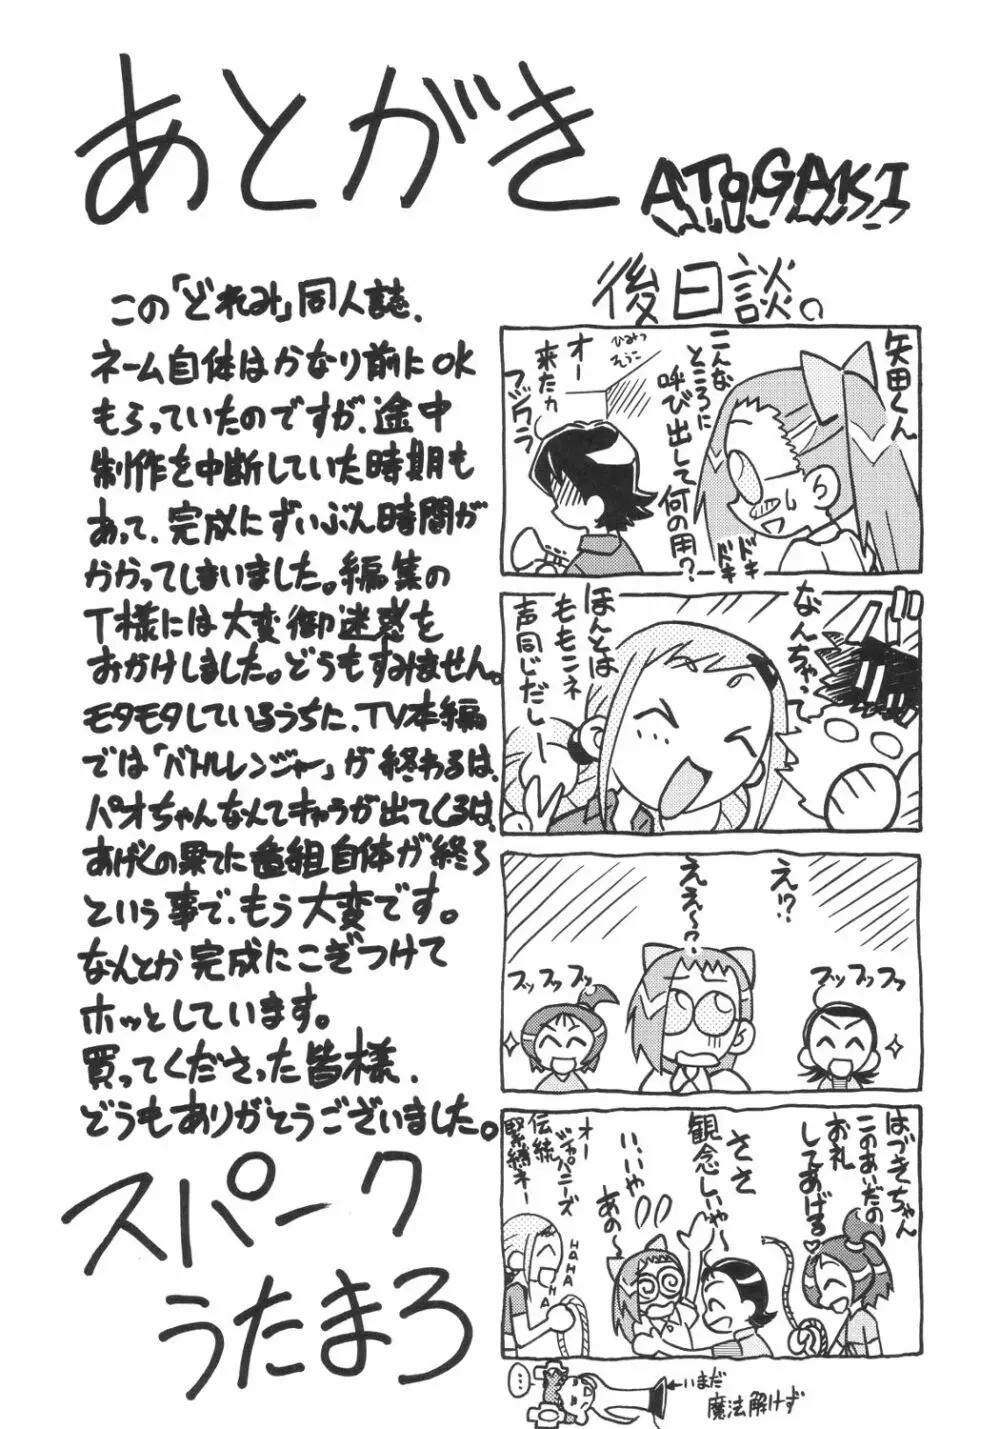 あとがき
ATOGAKI
この「どれみ」同人誌、
ネーム自体はかなり前にOK
もらっていたのですが、途中
制作を中断していた時期も
あって、完成にずいぶん時間が
かかってしまいました。編集の
T様には大変御迷惑を
おかけしました。どうもすみません。
モタモタしているうちに、TV本編
では「バトルレンジャー」が終わるは、
パオちゃんなんてキャラが出てくるは、
あげくの果てに番組自体が終る
という事で、もう大変です。
なんとか完成にこぎつけて
ホッとしています。
買ってくださった皆様、
どうもありがとうございました。
スパーク
うたまろ
後日談。
矢田くん
こんな
ところに
呼び出して
何の用?
ドキ
ドキ
ひみつ
そうこ
オー
来たカ
なんちゃって
ほんとは
ももこネ
声同じだしー
え!?
ええ〜?
プッププッ
プップップッ
はづきちゃん
このあいだの
お礼
してあげる♡
ささ
観念しぃや〜
いいや
あの〜
オー
ジャパニーズ
伝統
緊縛ネー
HAHA
HAHA
HA
…
←いまだ
魔法解けず